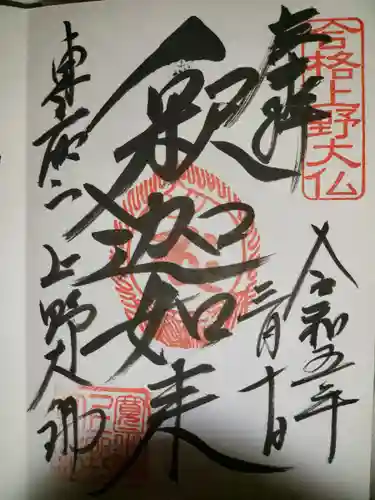 合格上野大仏
奉拝
令和五年
三月十日
釈迦如来
東叡山
上野大佛